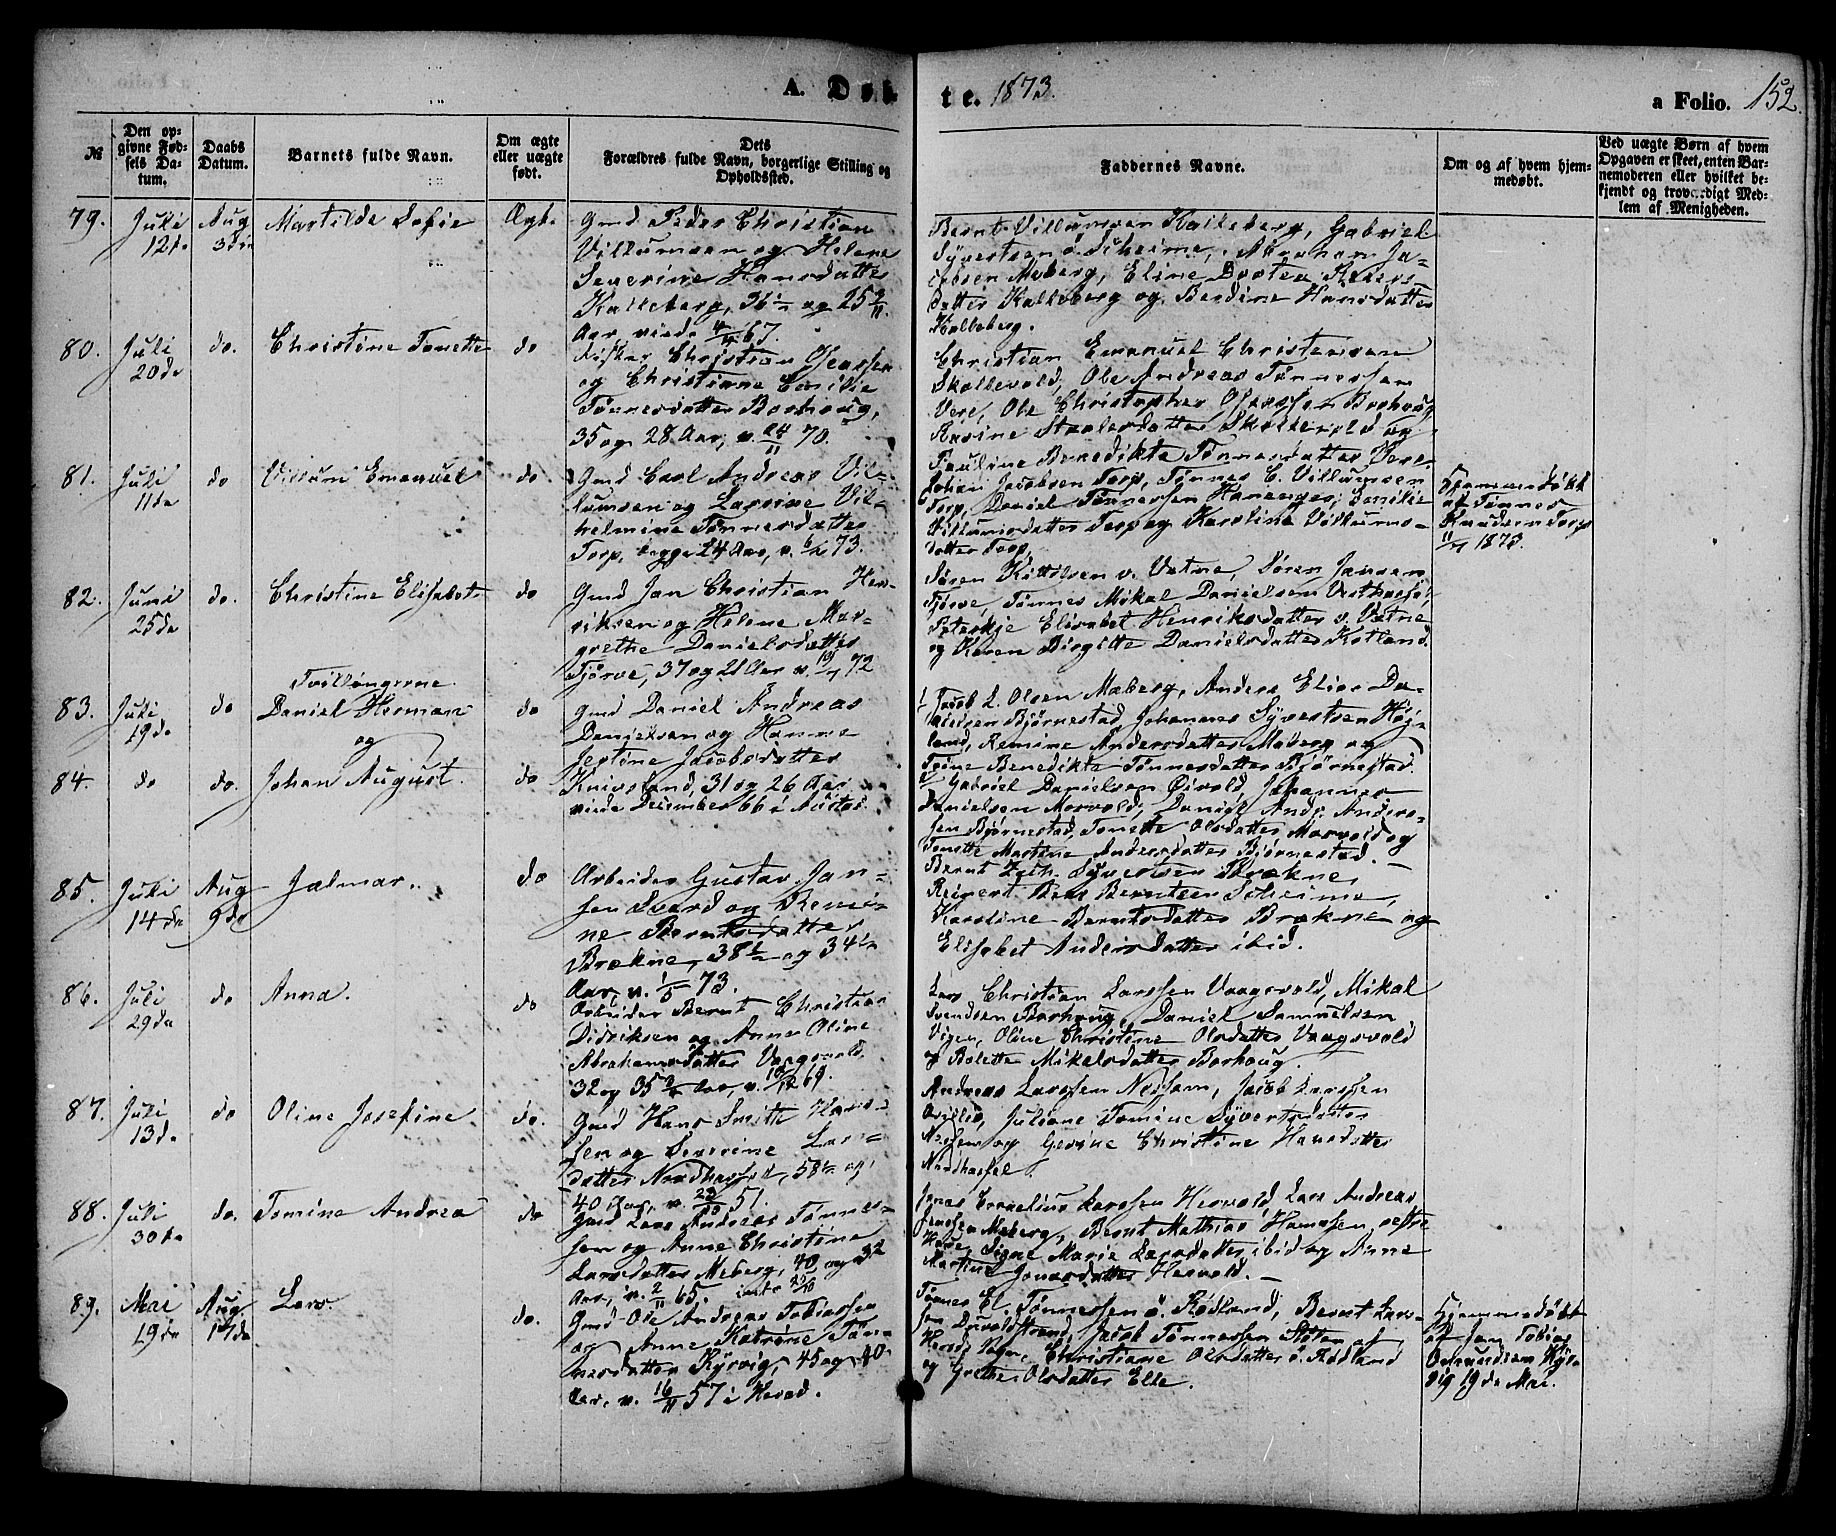 A. Døb
te. 1873.
a Folio. 152.
№
Den op-
givne Fød-
sels Da-
tum.
Daabs
Datum.
Barnets fulde Navn.
Om ægte
eller uægte
født.
Dets
Forældres fulde Navn, borgerlige Stilling og
Opholdssted.
Faddernes Navne.
Om og af hvem hjem-
medøbt.
Ved uægte Børn af hvem
Opgaven er skeet, enten Bar-
nemoderen eller hvilket be-
kjendt og troværdigt Med-
lem af Menigheden.
79. Juli Aug Martilde Sofie Ægte
12te 3die
Gmd Peder Christian
Villumsen og Helene
Severine Hansdatter
Kalleberg, 36 og 25
Aar, viede 67.
Bernt Villumsen Kalleberg, Gabriel
Syvertsen ø. Scheime, Abraham Ja-
cobsen Meberg, Eline Dortea Reiers-
datter Kalleberg og Berdine Hansdatter
Kalleberg.
80. Juli do. Christine Tonette do
20de
Fisker Christian Osenssen
og Christiane Emilie
Tønnesdatter Borhoug,
35 og 28 Aar, v. 24/11 70.
Christian Emanuel Christensen
Skollevold, Ole Andreas Tønnessen
Vere, Ole Christopher Osenssen Borhoug
Rasine Staalesdatter Skollevold og
Pauline Benedikte Tønnesdatter Vere.
81. Juli do Villum Emanuel do
11te
Gmd Carl Andreas Vil-
lumsen og Lavine Vil-
helmine Tønnesdatter
Torp, begge 24 Aar, v. 73.
Johan Jacobsen Torp, Tønnes C. Villumsen
Torp, Daniel Tønnessen Hananger, Emilie
Villumsdatter Torp og Karoline Villums-
datter Torp.
Hjemmedøbt
af Tønnes
Knudsen Torp
11/7 1873.
82. Juni do. Christine Elisabet do
25de
Gmd Jan Christian Hen-
riksen og Helene Mar-
grethe Danielsdatter
Tjørve, 37 og 21 Aar v. 72
Søren Kittilsen v. Vatne, Søren Jansen
Tjørve, Tønnes Mikal Danielsen Vesthassel,
Elisabet Henriksdatter v. Vatne
og Karen Birgitte Danielsdatter Kotland.
Tvillingerne
83. Juli do Daniel Herman do
19de og
Gmd Daniel Andreas
Danielsen og Hanne
Jestine Jacobsdatter
84. do do. Johan August. do
Knivsland, 31 og 26 Aar
viede December 66 i Austad.
Jacob L. Olsen Meberg, Anders Elias Da-
nielsen Bjørnestad, Johannes Syvertsen Høj-
land, Remine Andersdatter Meberg og
Trine Benedikte Tønnesdatter Bjørnestad.
Gabriel Danielsen Øivold, Johannes
Danielsen Morvold, Daniel Andr. Anders-
sen Bjørnestad, Tonette Olsdatter Morvold og
Tonette Martine Andersdatter Bjørnestad.
85. Juli Aug Jalmar. do
14de 9de
Arbeider Gustav Jan-
sen Svard og Remi-
ne Berntsdatter
Brækne, 38 1/2 og 34
Aar, v. 1/5 73.
Bernt Zach. Syvertsen Brækne,
Reinert Berntsen Scheime,
Karoline Berntsdatter Brækne og
Elisabet Andersdatter ibid.
86. Juli do Anna. do
29de
Arbeider Bernt Christian
Didriksen og Anne Oline
Abrahamsdatter Vaagsvold
32 og 35 Aar, v. 69.
Lars Christian Larssen Vaagsvold, Mikal
Svendsen Borhoug, Daniel Samuelsen
Vigen, Oline Christine Olsdatter Vaagsvold
og Bolette Mikelsdatter Borhoug.
87. Juli do Oline Josefine do.
13de
Gmd Hans Smith Han-
sen og Severine Lars-
datter Nordhassel, 58 og
40 Aar, v. 51.
Andreas Larssen Nessem, Jacob Larssen
Juliane Tomine Syvertsdatter
og Gesine Christine Hansdatter
Nordhassel.
88. Juli do. Tomine Andrea do
30te
Gmd Lars Andreas Tønnes-
sen og Anne Christine
Larsdatter Meberg, 40 og 32
Aar, v. 2/11 65.
Jonas Cornelius Larssen Hesvold, Lars Andreas
Jenssen Meberg, Bernt Mathias Hanssen, vestre
Signe Marie Larsdatter ibid og Anne
Martine Jonasdatter Hesvold.
89. Mai Aug Lars. do.
19de 17de
Gmd Ole Andreas Tobiassen
og Anne Katrine Tøn-
nesdatter Kjørvig, 45 og 40
Aar, v. 16/11 57 i Hered.
Tønnes El. Tønnessen ø. Rødland, Bernt Lars-
sen Jacob Tønnessen
Christiane Olsdatter ø. Rødland
og Grethe Olsdatter Elle.
Hjemmedøbt
af Jan Tobias
Omundsen Kjør-
vig 19de Mai.